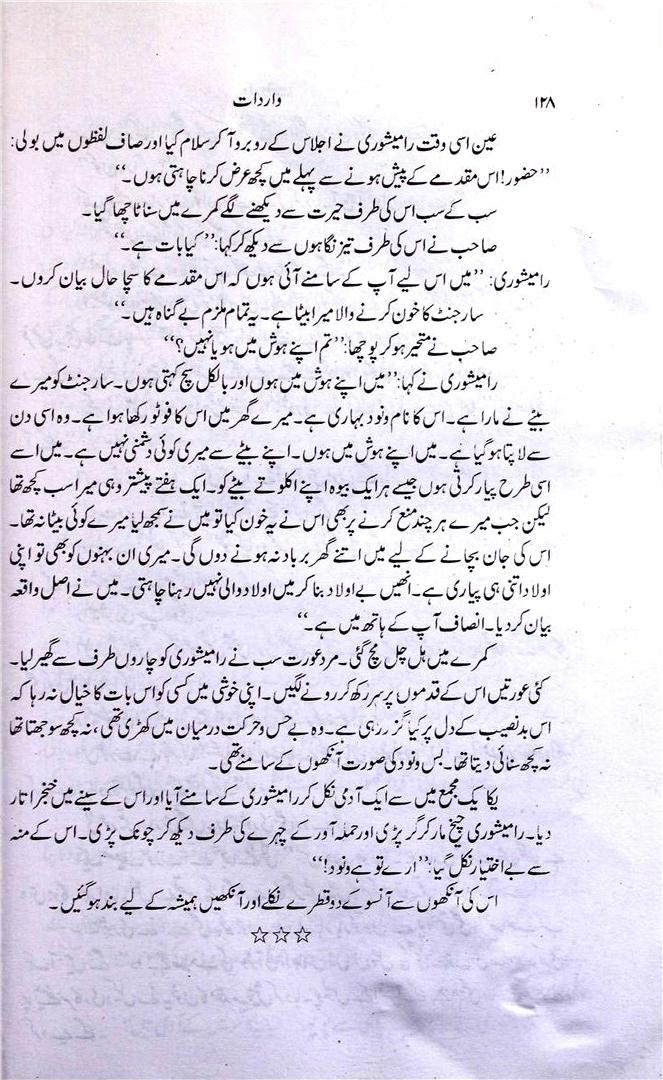 ۱۲۸ واردات
عین اسی وقت رامیشوری نے اجلاس کے روبرو آ کر سلام کیا اور صاف لفظوں میں بولی:
’’حضور! اس مقدمے کے پیش ہونے سے پہلے میں کچھ عرض کرنا چاہتی ہوں۔‘‘
سب کے سب اس کی طرف حیرت سے دیکھنے لگے کمرے میں سناٹا چھا گیا۔
صاحب نے اس کی طرف تیز نگاہوں سے دیکھ کر کہا: ’’کیا بات ہے۔‘‘
رامیشوری: ’’میں اس لیے آپ کے سامنے آئی ہوں کہ اس مقدمے کا سچا حال بیان کروں۔
سارجنٹ کا خون کرنے والا میرا بیٹا ہے۔ یہ تمام ملزم بے گناہ ہیں۔‘‘
صاحب نے متحیر ہو کر پوچھا: ’’تم اپنے ہوش میں ہو یا نہیں؟‘‘
رامیشوری نے کہا: ’’میں اپنے ہوش میں ہوں اور بالکل سچ کہتی ہوں۔ سارجنٹ کو میرے
بیٹے نے مارا ہے۔ اس کا نام ونود بہاری ہے۔ میرے گھر میں اس کا فوٹو رکھا ہوا ہے۔ وہ اسی دن
سے لاپتا ہو گیا ہے۔ میں اپنے ہوش میں ہوں۔ اپنے بیٹے سے میری کوئی دشمنی نہیں ہے۔ میں اسے
اسی طرح پیار کرتی ہوں جیسے ہر ایک بیوہ اپنے اکلوتے بیٹے کو۔ ایک ہفتے پیشتر وہی میرا سب کچھ تھا
لیکن جب میرے ہر چند منع کرنے پر بھی اس نے یہ خون کیا تو میں نے سمجھ لیا میرے کوئی بیٹا نہ تھا۔
اس کی جان بچانے کے لیے میں اتنے گھر برباد نہ ہونے دوں گی۔ میری ان بہنوں کو بھی تو اپنی
اولاد اتنی ہی پیاری ہے۔ انھیں بے اولاد بنا کر میں اولاد والی نہیں رہنا چاہتی۔ میں نے اصل واقعہ
بیان کر دیا۔ انصاف آپ کے ہاتھ میں ہے۔‘‘
کمرے میں ہل چل مچ گئی۔ مرد عورت سب نے رامیشوری کو چاروں طرف سے گھیر لیا۔
کئی عورتیں اس کے قدموں پر سر رکھ کر رونے لگیں۔ اپنی خوشی میں کسی کو اس بات کا خیال نہ رہا کہ
اس بدنصیب کے دل پر کیا گزر رہی ہے۔ وہ بے حس و حرکت درمیان میں کھڑی تھی، نہ کچھ سوجھتا تھا
نہ کچھ سنائی دیتا تھا۔ بس ونود کی صورت آنکھوں کے سامنے تھی۔
یکایک مجمع میں سے ایک آدمی نکل کر رامیشوری کے سامنے آیا اور اس کے سینے میں خنجر اتار
دیا۔ رامیشوری چیخ مار کر گر پڑی اور حملہ آور کے چہرے کی طرف دیکھ کر چونک پڑی۔ اس کے منہ
سے بے اختیار نکل گیا: ’’ارے تو ہے ونود!‘‘
اس کی آنکھوں سے آنسو کے دو قطرے نکلے اور آنکھیں ہمیشہ کے لیے بند ہو گئیں۔
☆☆☆